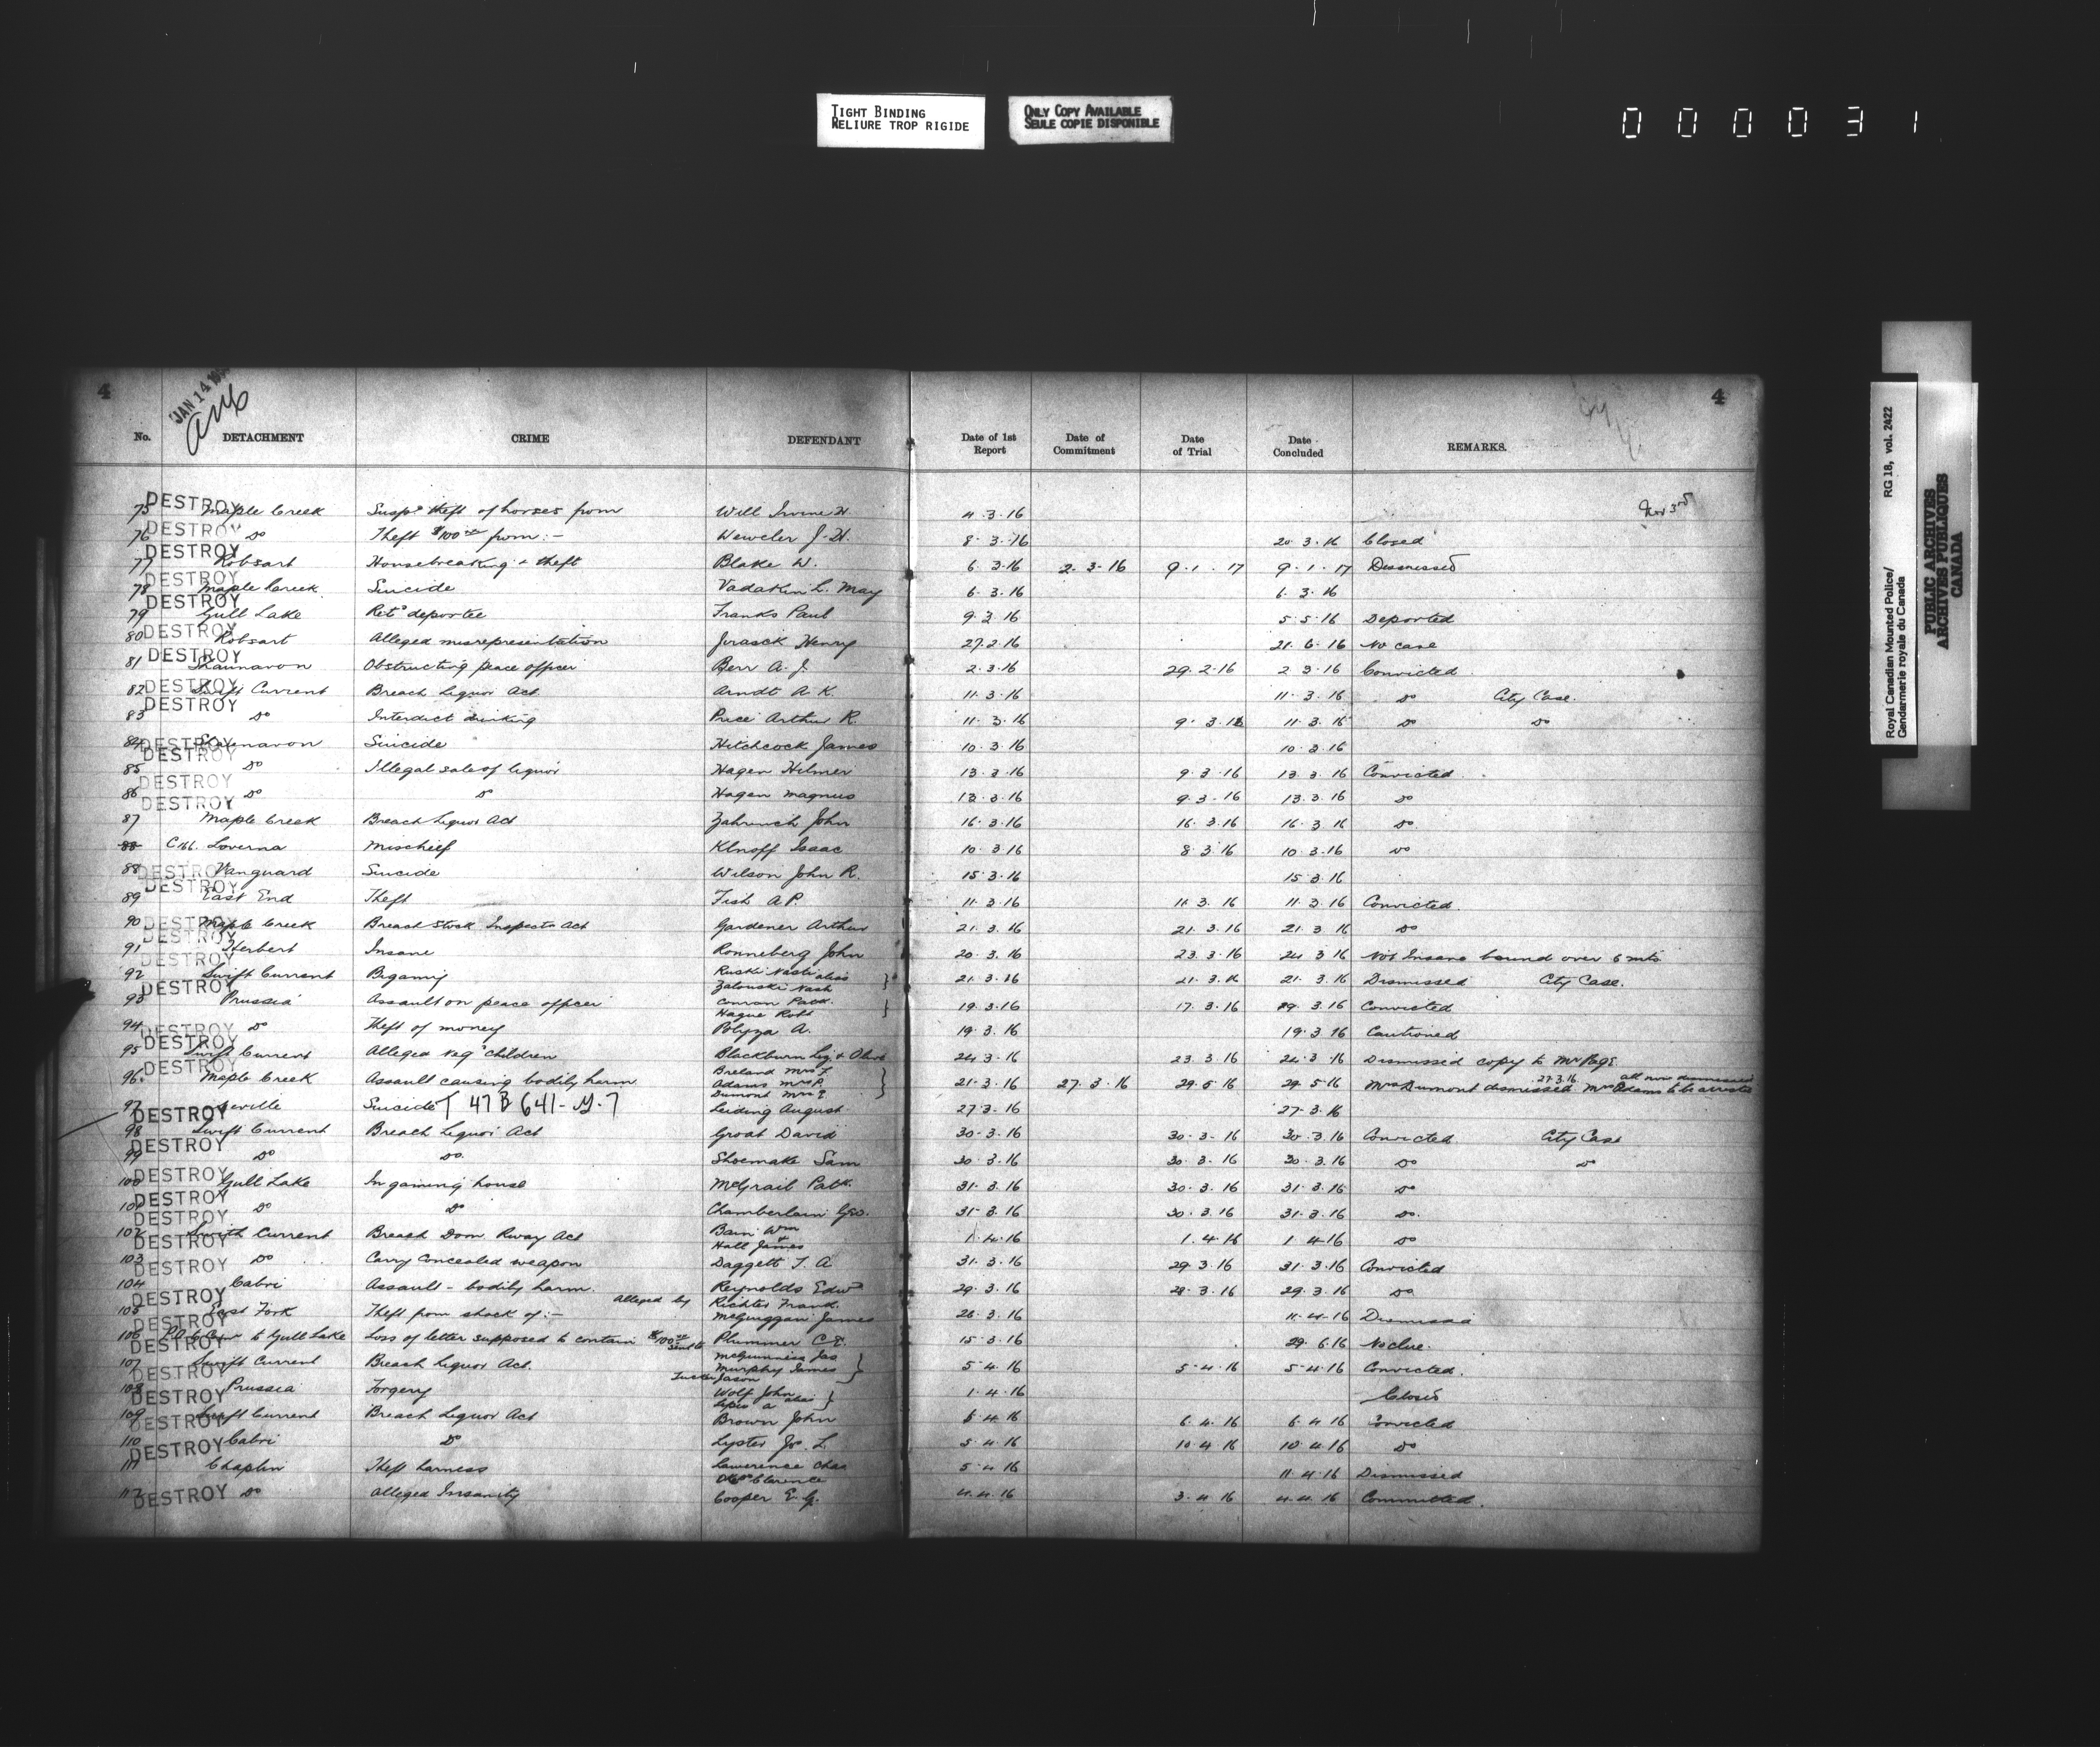 TIGHT BINDING
RELIURE TROP RIGIDE
ONLY COPY AVAILABLE
SEULE COPIE DISPONIBLE
000031
Royal Canadian Mounted Police/ RG 18, vol. 2422
Gendarmerie royale du Canada
PUBLIC ARCHIVES
ARCHIVES PUBLIQUES
CANADA
4 JAN 14 4
No. DETACHMENT CRIME DEFENDANT Date of 1st Report Date of Commitment Date of Trial Date Concluded REMARKS.
Nov 3rd
75 DESTROY Maple Creek Suspd theft of horses from Will Irvine H. 4.3.16
76 DESTROY Do Theft $100 from:- Weweler J.H. 8.3.16 20.3.16 Closed
77 DESTROY Robsart Housebreaking & theft Blake W. 6.3.16 2.3.16 9.1.17 9.1.17 Dismissed
78 DESTROY Maple Creek Suicide Vadakin L. May 6.3.16 6.3.16
79 DESTROY Gull Lake Retd deportee Franks Paul 9.3.16 5.5.16 Deported
80 DESTROY Robsart Alleged misrepresentation Henry 27.2.16 21.6.16 No case
81 DESTROY Shaunavon Obstructing peace officer Berr A.J. 2.3.16 29.2.16 2.3.16 Convicted
82 DESTROY Swift Current Breach Liquor Act Arndt A.K. 11.3.16 11.3.16 Do City Case.
83 DESTROY Do Interdict drinking Price Arthur R. 11.3.16 9.3.16 11.3.16 Do Do
84 DESTROY Shaunavon Suicide Hitchcock James 10.3.16 10.3.16
85 DESTROY Do Illegal sale of liquor Hagen Hilmer 13.3.16 9.3.16 13.3.16 Convicted
86 DESTROY Do Do Hagen Magnus 13.3.16 9.3.16 13.3.16 Do
87 DESTROY Maple Creek Breach Liquor Act John 16.3.16 16.3.16 16.3.16 Do
88 Loverna Mischief Klnoff Isaac 10.3.16 8.3.16 10.3.16 Do
88 DESTROY Vanguard Suicide Wilson John R. 15.3.16 15.3.16
89 DESTROY East End Theft Fish A.P. 11.3.16 11.3.16 11.3.16 Convicted.
90 DESTROY Maple Creek Breach Stock Inspectn Act Gardener Arthur 21.3.16 21.3.16 21.3.16 Do
91 DESTROY Herbert Insane Ronneberg John 20.3.16 23.3.16 24.3.16 Not Insane bound over 6 mts.
92 DESTROY Swift Current Bigamy Ruski Nash alias
Zalonski Nash } 21.3.16 21.3.16 21.3.16 Dismissed City Case.
93 DESTROY Prussia Assault on peace officer Conron Patk.
Hague Robt } 19.3.16 17.3.16 29.3.16 Convicted
94 DESTROY Do Theft of money Polyza A. 19.3.16 19.3.16 Cautioned
95 DESTROY Swift Current Alleged neg children Blackburn & Olive 24.3.16 23.3.16 24.3.16 Dismissed copy to Mr Page
96 DESTROY Maple Creek Assault causing bodily harm Breland Mrs F.
Adams Mrs P.
Dumont Mrs E } 21.3.16 27.3.16 29.5.16 29.5.16 Mrs Dumont dismissed 27.3.16 Mrs Adams to be arrested all now dismissed
97 DESTROY Suicide T 47 B 641-G-7 Leiding August 27.3.16 27.3.16
98 DESTROY Swift Current Breach Liquor Act Groat David 30.3.16 30.3.16 30.3.16 Convicted City Case
99 DESTROY Do Do. Shoemake Sam 30.3.16 30.3.16 30.3.16 Do Do
100 DESTROY Gull Lake In gaming house McGrail Patk. 31.3.16 30.3.16 31.3.16 Do
101 DESTROY Do Do Chamberlain Geo. 31.3.16 30.3.16 31.3.16 Do.
102 DESTROY Swift Current Breach Dom Rway Act Bain Wm &
Hall James 1.4.16 1.4.16 1.4.16 Do
103 DESTROY Do Carry Concealed weapon Daggett T.A 31.3.16 29.3.16 31.3.16 Convicted
104 DESTROY Cabri Assault - bodily harm. Reynolds Edwd 29.3.16 28.3.16 29.3.16 Do
105 DESTROY East Fork Theft from shack of:- alleged by Richter Frand.
McGuiggan James 26.3.16 11.4.16 Dismissed
106 DESTROY to Gull Lake Loss of letter supposed to contain $100 sent to Plummer C.E. 15.3.16 29.6.16 No clue.
107 DESTROY Swift Current Breach Liquor Act. McGuinness Jas
Murphy James
Tucker Jason } 5.4.16 5.4.16 5.4.16 Convicted.
108 DESTROY Prussia Forgery Wolf John
alias } 1.4.16 Closed
109 DESTROY Swift Current Breach Liquor Act Brown John 6.4.16 6.4.16 6.4.16 Convicted
110 DESTROY Cabri Do Lyster Jos. L. 5.4.16 10.4.16 10.4.16 Do
111 DESTROY Chaplin Theft harness Lawerence Chas
Clarence 5.4.16 11.4.16 Dismissed
112 DESTROY Do Alleged Insanity Cooper E.G. 4.4.16 3.4.16 4.4.16 Committed.